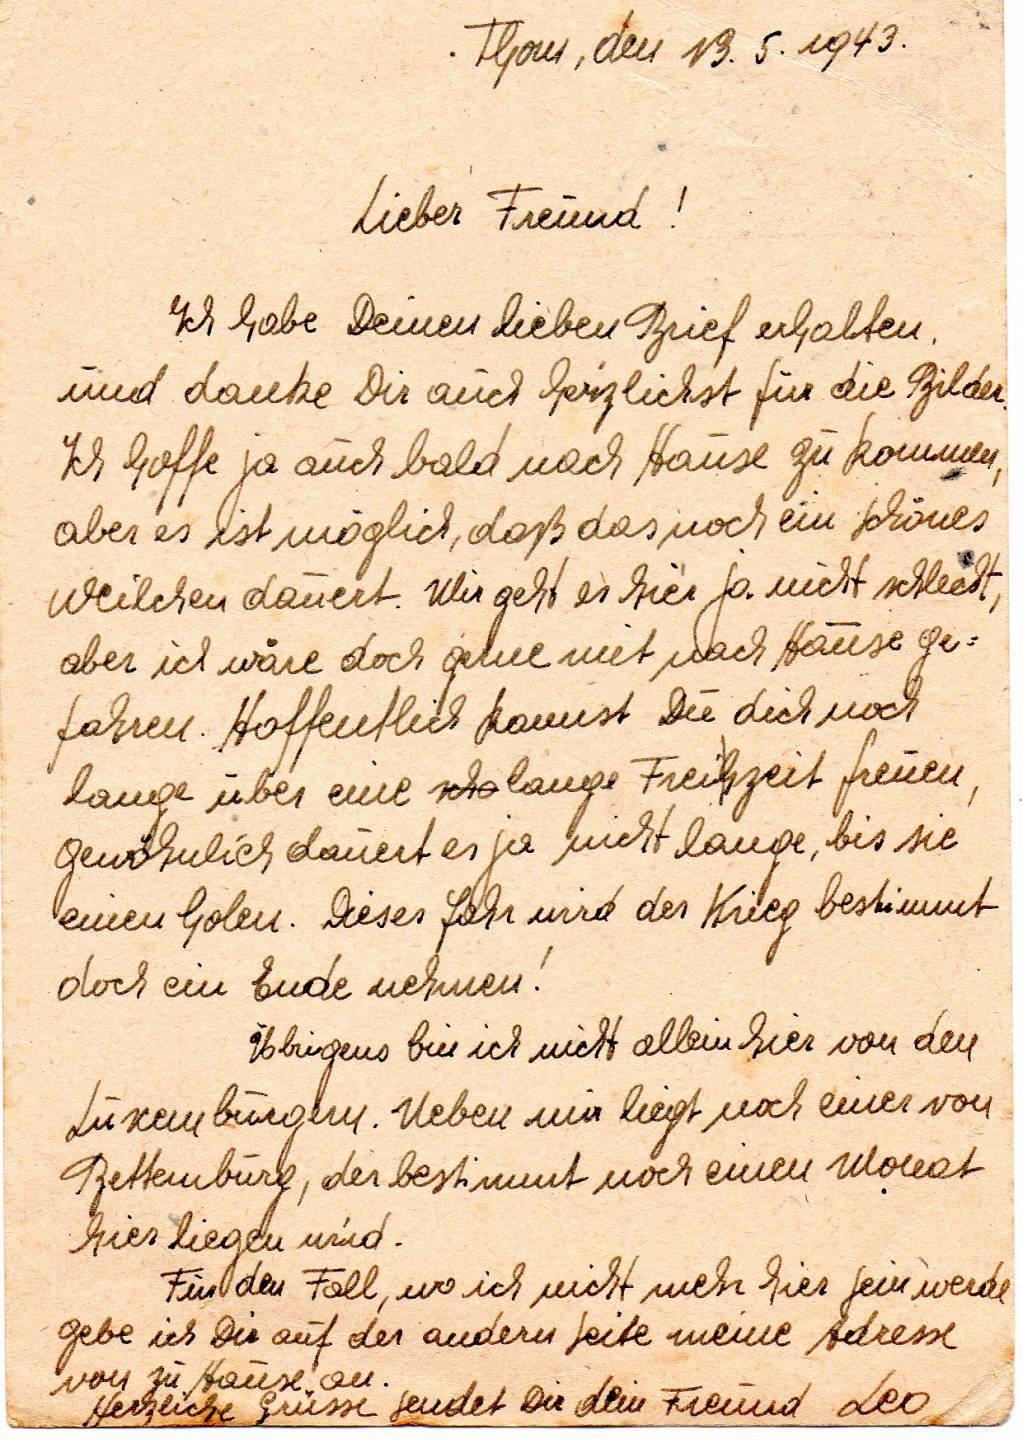 Thorn, den 13. 5. 1943.
Lieber Freund!
Ich habe Deinen lieben Brief erhalten,
und danke Dir auch herzlichst für die Bilder.
Ich hoffe ja auch bald nach Hause zu kommen,
aber es ist möglich, daß das noch ein schönes
Weilchen dauert. Mir geht es hier ja nicht schlecht,
aber ich wäre doch gerne mit nach Hause ge=
fahren. Hoffentlich kannst Du dich noch
lange über eine lange Freizeit freuen,
gewöhnlich dauert es ja nicht lange, bis sie
einen holen. Dieses Jahr wird der Krieg bestimmt
doch ein Ende nehmen!
Übrigens bin ich nicht allein hier von den
Luxemburgern. Neben mir liegt noch einer von
Bettemburg, der bestimmt noch einen Monat
hier liegen wird.
Für den Fall, wo ich nicht mehr hier sein werde
gebe ich Dir auf der andern Seite meine Adresse
von zu Hause an.
Herzliche Grüsse sendet Dir dein Freund Leo